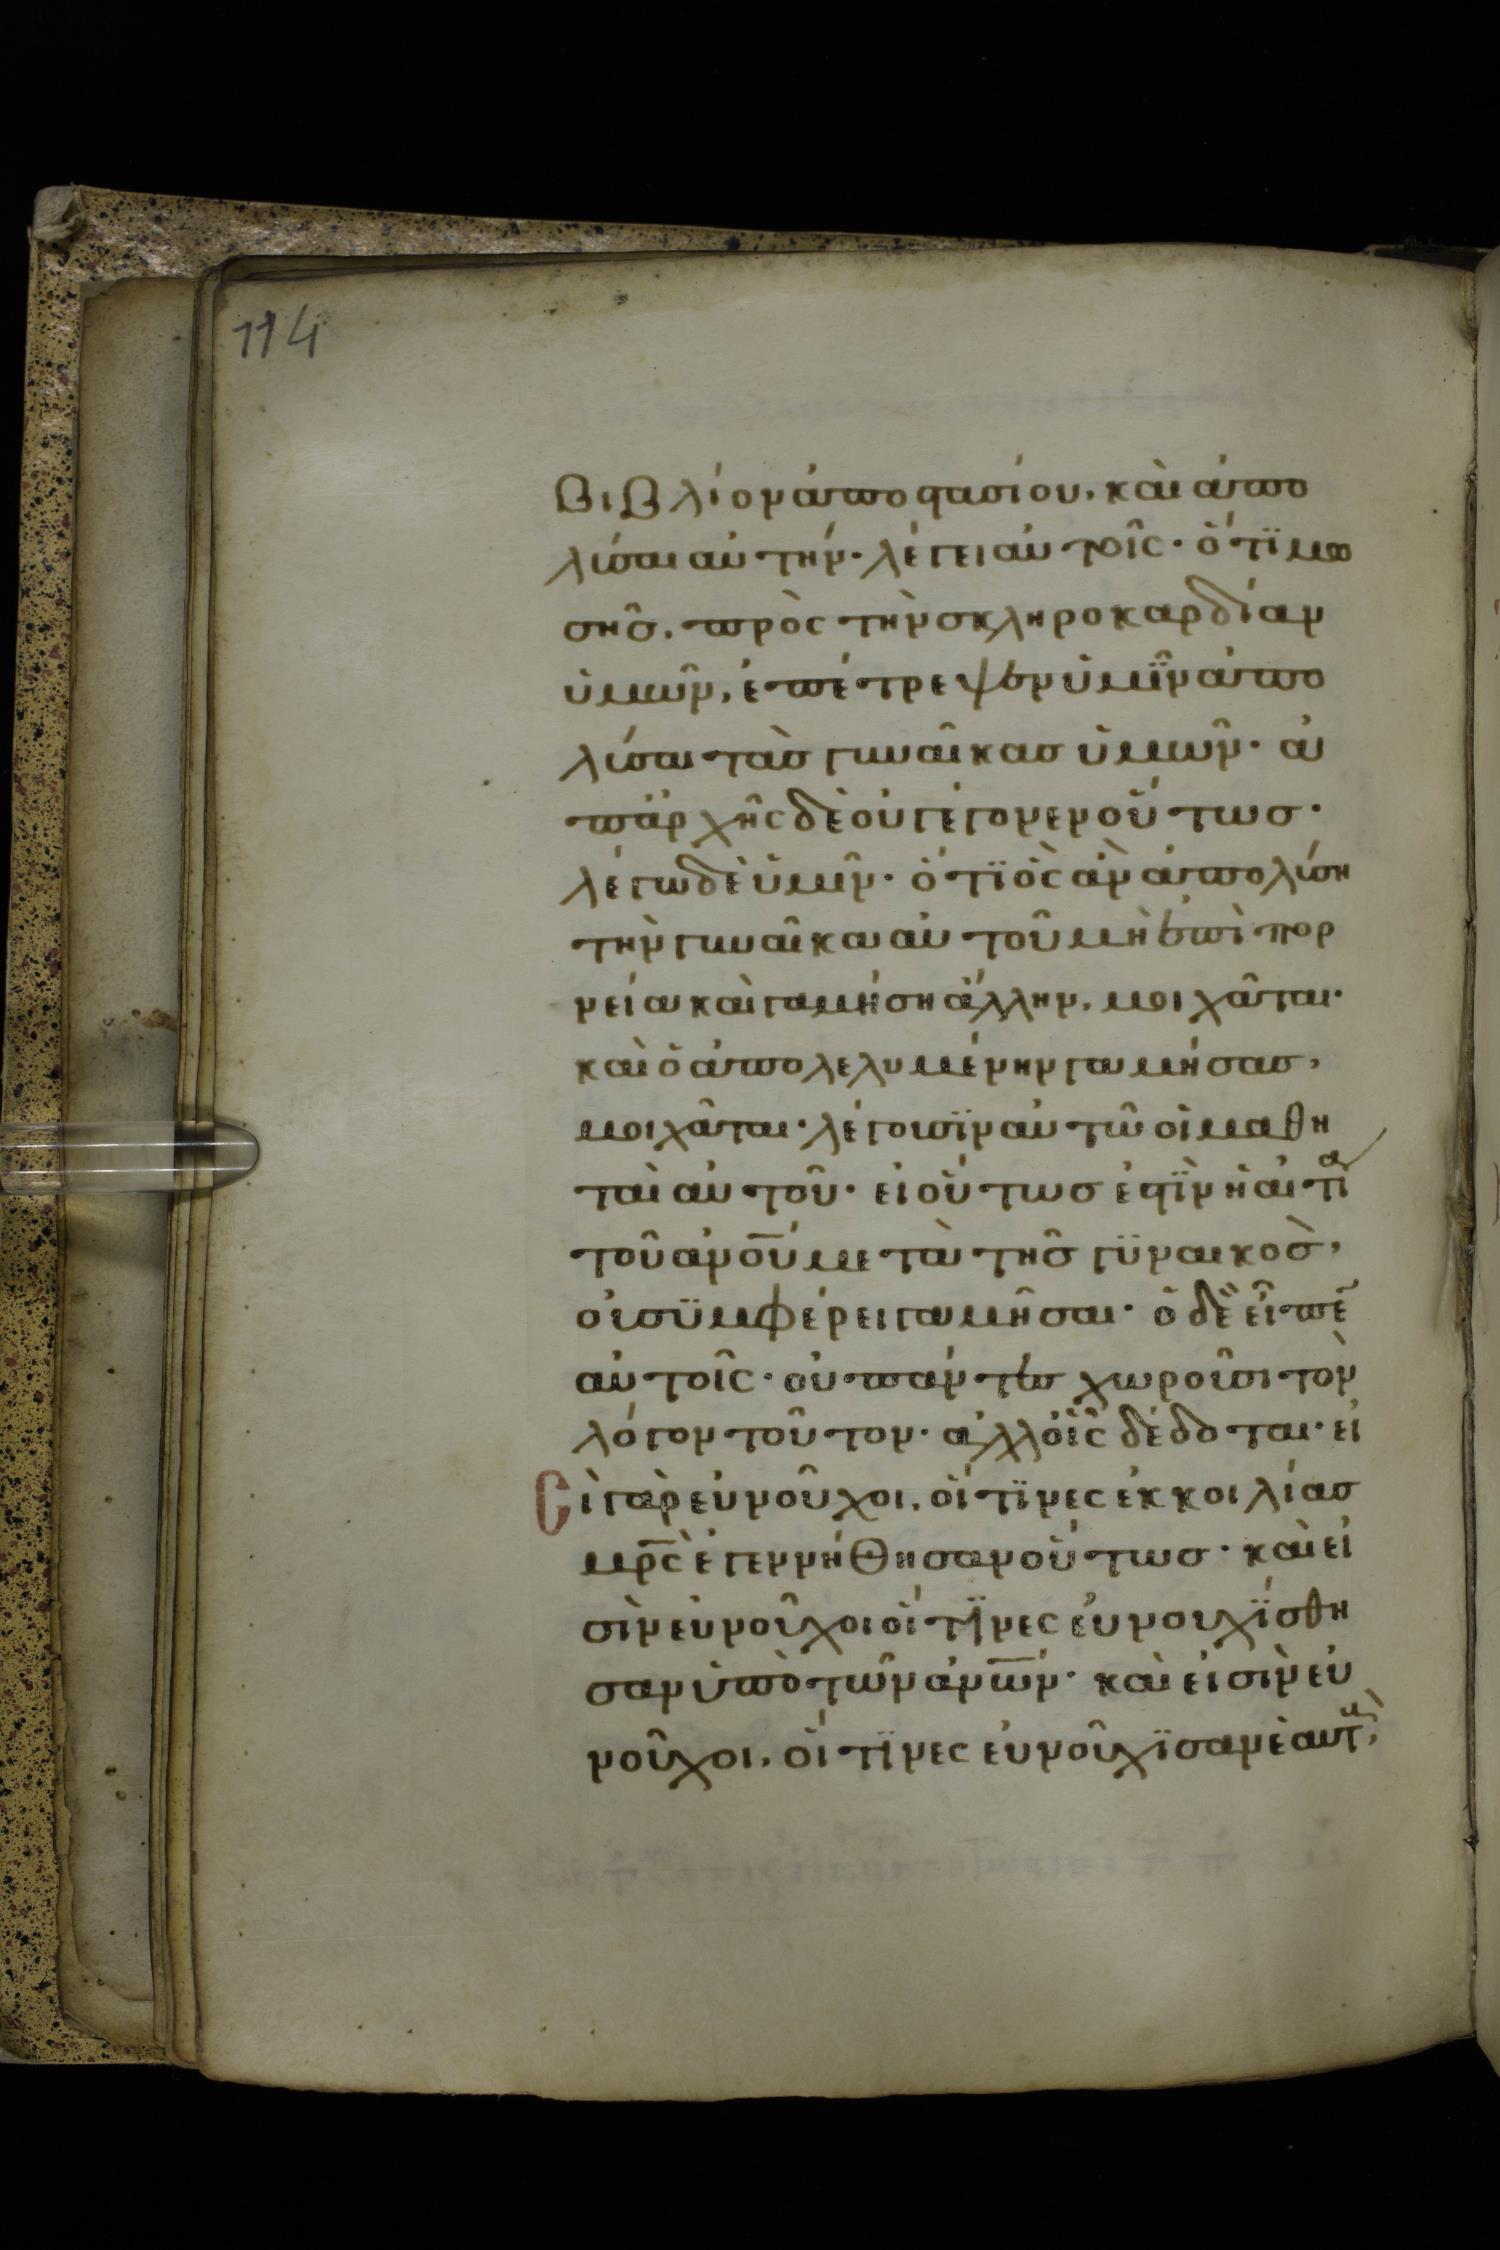 114
βιβλίον ἀποφασίου, καὶ ἀπο
λύσαι αὐτήν· λέγει αὐτοῖς· ὅτϊ μω
σῆς, πρὸς τὴν σκληροκαρδίαν
ὑμῶν, ἐπέτρεψεν ὑμῖν ἀπο
λύσαι τὰς γυναῖκας ὑμῶν· ἀ
πἀρχῆς δὲ οὐ γέγονεν οὕτως·
λέγω δὲ ὑμῖν· ὅτϊ ὃς ἂν ἀπολύση
τὴν γυναῖκα αὐτοῦ μὴ ἐπὶ πορ
νεία καὶ γαμήση ἄλλην, μοιχᾶται·
καὶ ὁ ἀπολελυμένην γαμήσας,
μοιχᾶται· λέγουσϊν αὐτῶ οἱ μαθη
ταὶ αὐτοῦ· εἰ οὕτως ἐστὶν ἡ αἰτία
τοῦ ἀν̅ο̅υ̅ μετὰ τῆς γϋναικὸς,
οὐ σϋμφέρει γαμῆσαι· ὁ δὲ εἶπε̅
αὐτοῖς· οὐ πάντες χωροῦσι τὸν
λόγον τοῦτον· ἀλλ οἷς δέδοται· εἰ
Σὶ γὰρ εὐνοῦχοι, οἵτϊνες ἐκ κοιλίας
μ̅ρ̅ς̅ ἐγεννήθησαν οὕτως· καὶ εἰ
σὶν εὐνοῦχοι οἵτϊνες εὐνουχϊσθη
σαν ὑπὸ τῶν ἀν̅ω̅ν̅· καὶ εἰσὶν εὐ
νοῦχοι, οἵτϊνες εὐνούχϊσαν ἑαυτ,